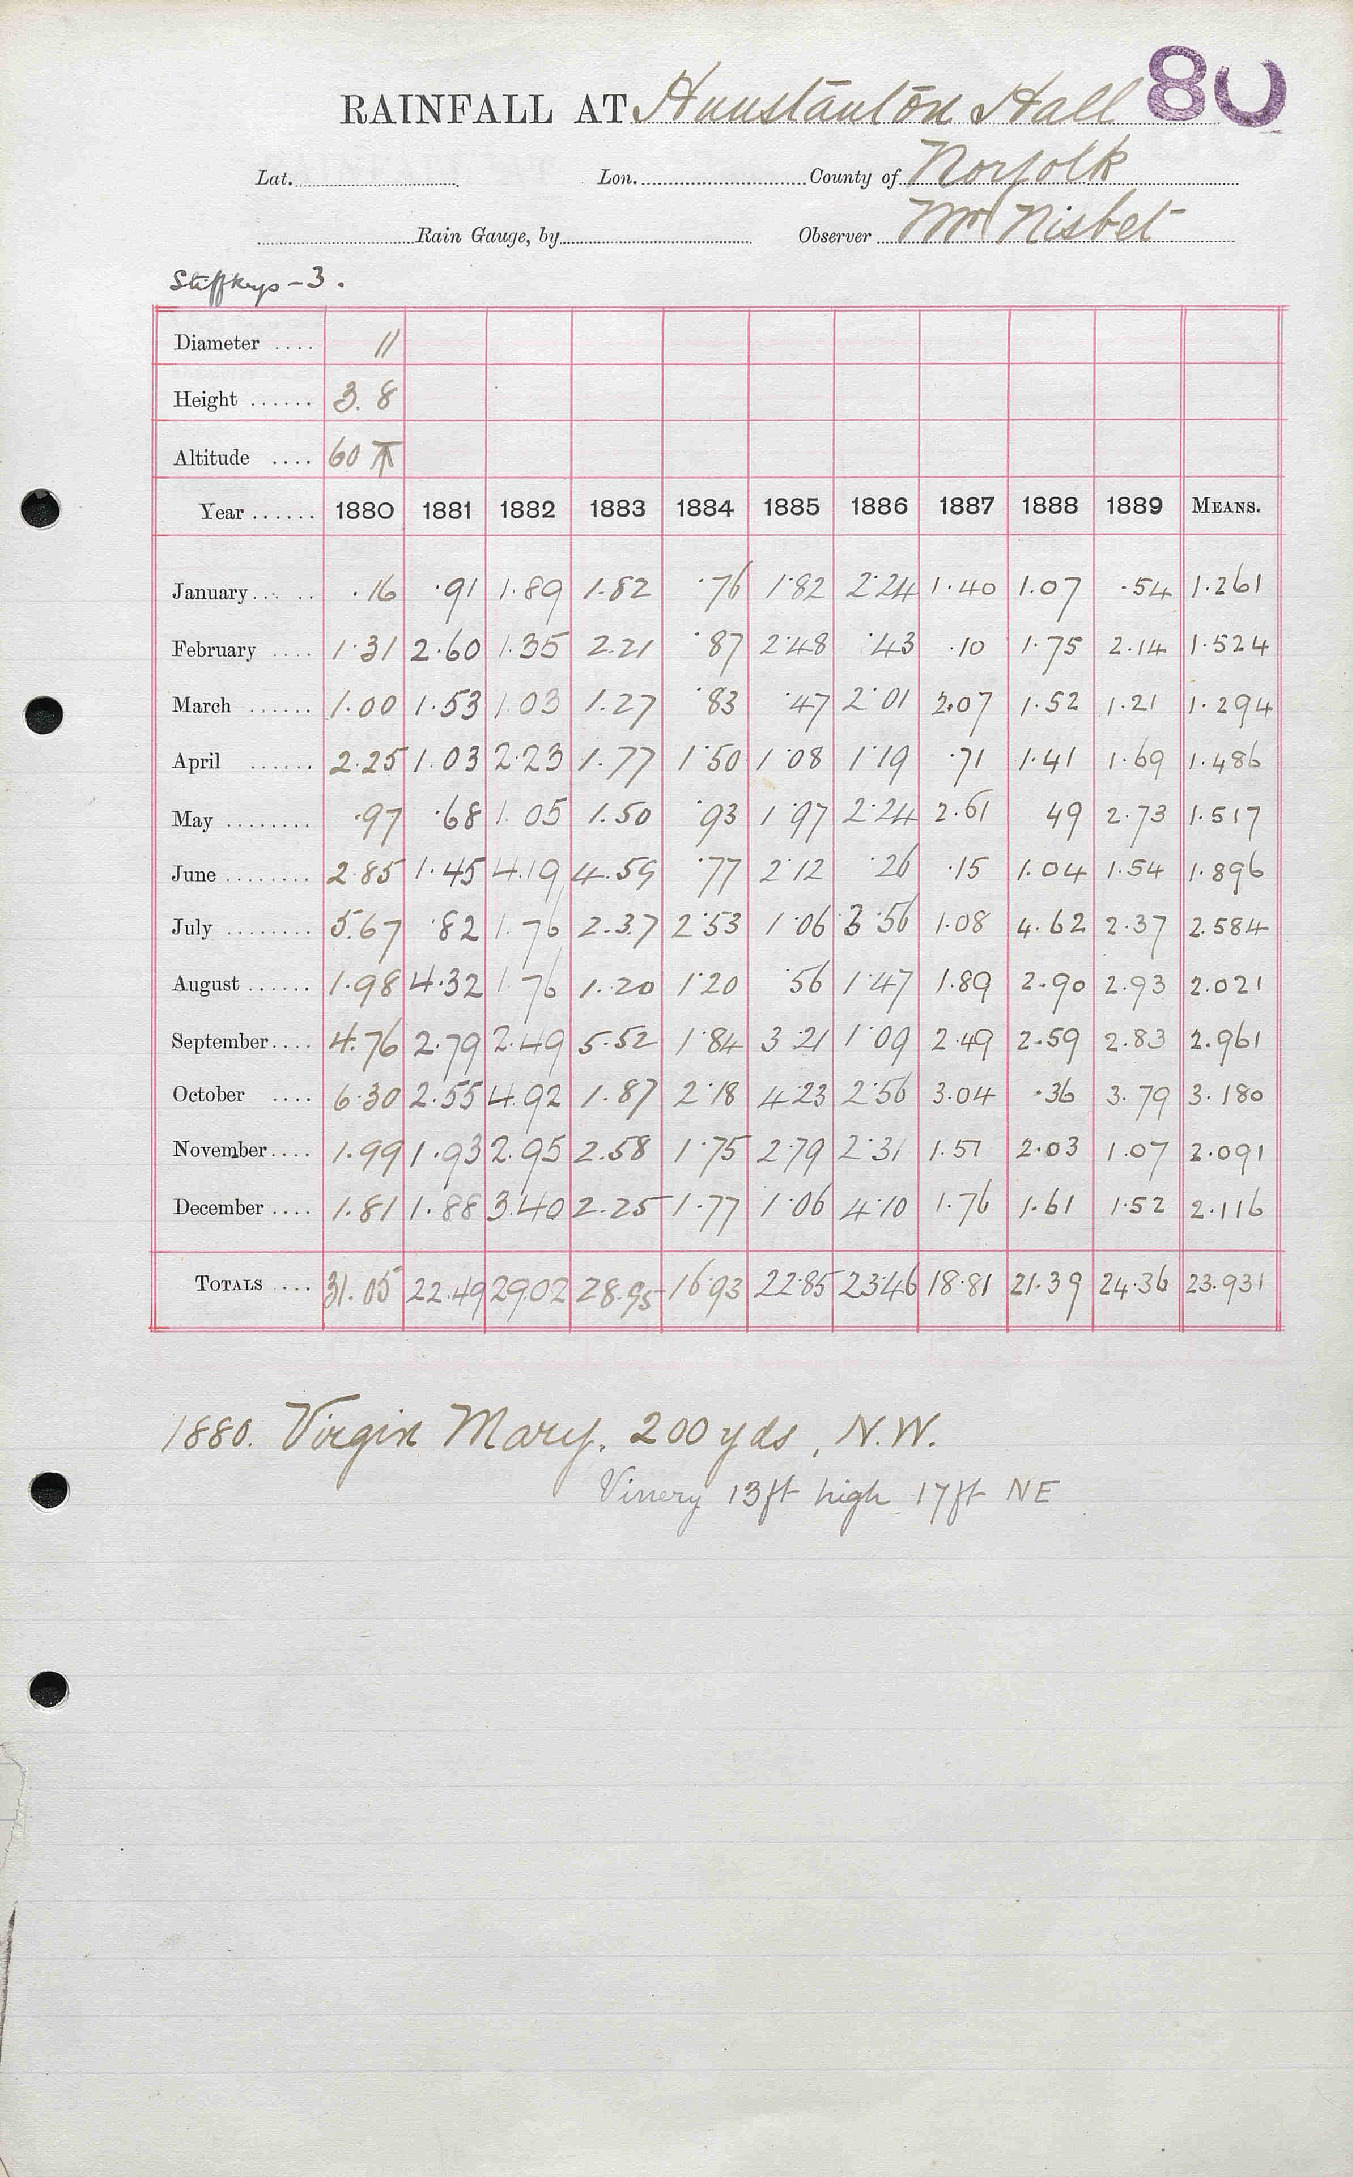 80
RAINFALL AT Hunstanton Hall
Lat. Lon. County of Norfolk
Rain Gauge, by Observer Mr Nisbet
Stiffkeys - 3.
Diameter .... 11
Height ...... 3.8
Altitude .... 60
Year ...... 1880 1881 1882 1883 1884 1885 1886 1887 1888 1889 MEANS.
January ... .16 .91 1.89 1.82 .76 1.82 2.24 1.40 1.07 .54 1.261
February .... 1.31 2.60 1.35 2.21 .87 2.48 .43 .10 1.75 2.14 1.524
March ...... 1.00 1.53 1.03 1.27 .83 .47 2.01 2.07 1.52 1.21 1.294
April ...... 2.25 1.03 2.23 1.77 1.50 1.08 1.19 .71 1.41 1.69 1.486
May ........ .97 .68 1.05 1.50 .93 1.97 2.24 2.61 49 2.73 1.517
June ........ 2.85 1.45 4.19 4.59 .77 2.12 .26 .15 1.04 1.54 1.896
July ........ 5.67 .82 1.76 2.37 2.53 1.06 3.56 1.08 4.62 2.37 2.584
August ...... 1.98 4.32 1.76 1.20 1.20 .56 1.47 1.89 2.90 2.93 2.021
September .... 4.76 2.79 2.49 5.52 1.84 3.21 1.09 2.49 2.59 2.83 2.961
October .... 6.30 2.55 4.92 1.87 2.18 4.23 2.56 3.04 .36 3.79 3.180
November .... 1.99 1.93 2.95 2.58 1.75 2.79 2.31 1.51 2.03 1.07 2.091
December .... 1.81 1.88 3.40 2.25 1.77 1.06 4.10 1.76 1.61 1.52 2.116
TOTALS .... 31.05 22.49 29.02 28.95 16.93 22.85 23.46 18.81 21.39 24.36 23.931
1880. Virgin Mary. 200 yds, N.W.
Vinery 13ft high 17ft NE